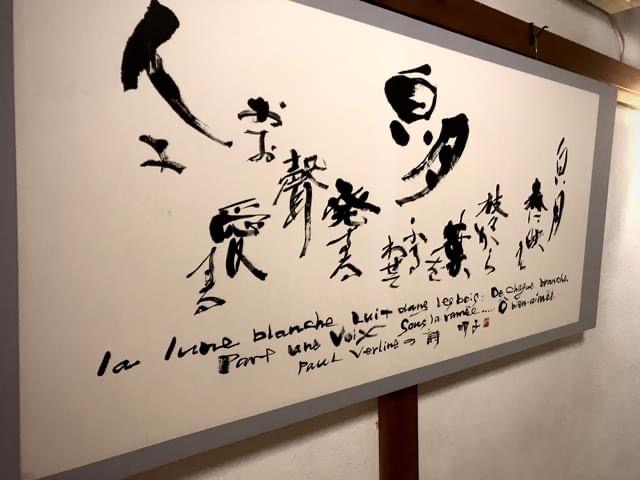 白月
森に映え
枝々から
葉を
ふるわせて
白月
発する
聲
おお
愛する
人よ
la lune blanche Luit dans les bois: De chaque branche.
Part une Voix Sous la ramée..... Ô bien-aimée.
Paul Verline の 詩